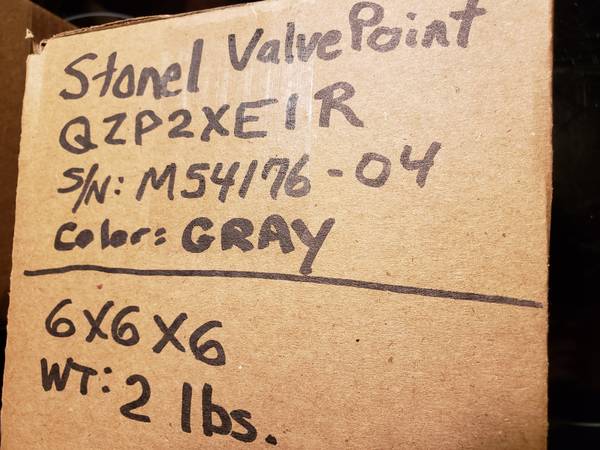 Stonel ValvePoint
QZP2XE1R
S/N: M54176-04
Color: GRAY
6X6X6
WT: 2 lbs.